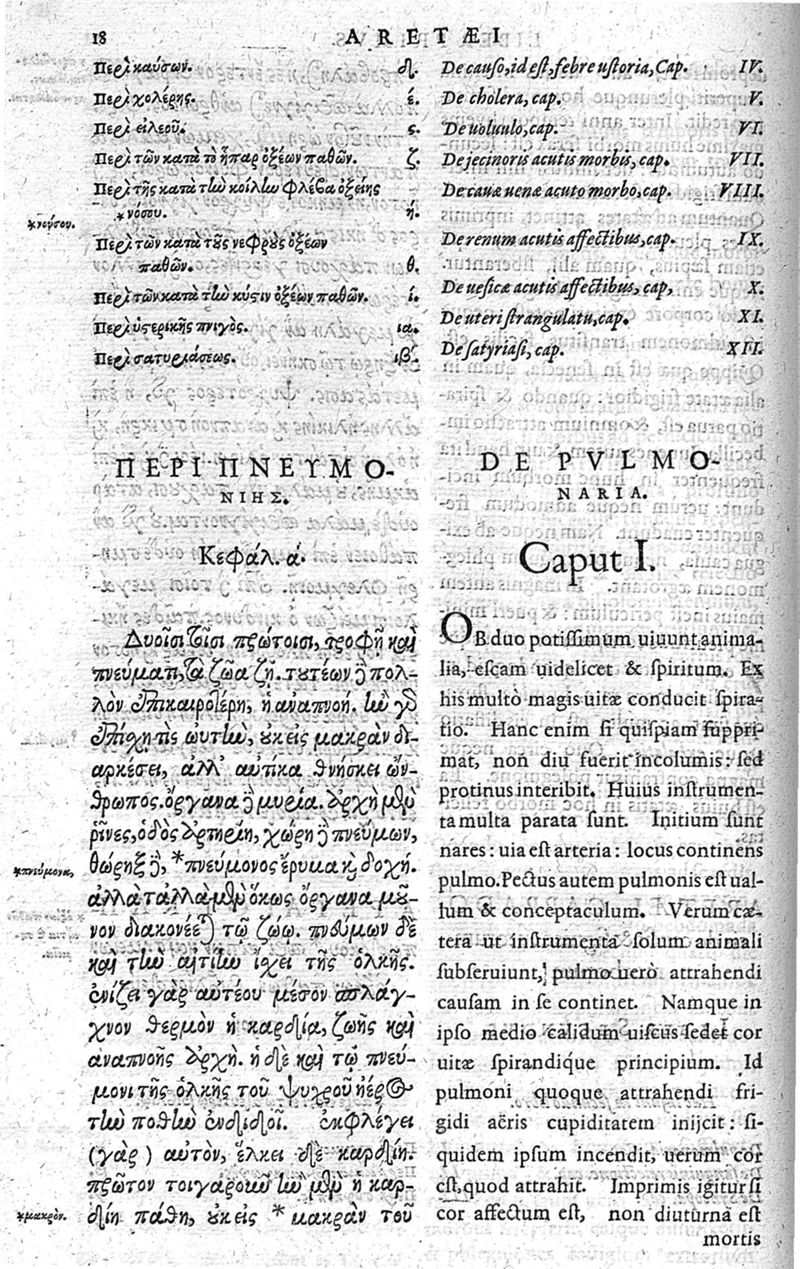 18
ARETÆI
Περὶ καύσων. δ.
Περὶ χολέρης. έ.
Περὶ εἰλεοῦ. ς.
Περὶ τῶν κατὰ τὸ ἧπαρ ὀξέων παθῶν. ζ.
Περὶ τῆς κατὰ τὴν κοίλην φλέβα ὀξείης
*νόσου. ή.
*νούσου.
Περὶ τῶν κατὰ τοὺς νεφροὺς ὀξέων
παθῶν. θ.
Περὶ τῶν κατὰ τὴν κύστιν ὀξέων παθῶν. ί.
Περὶ ὑστερικῆς πνιγός. ια.
Περὶ σατυριάσεως. ιβ.
ΠΕΡΙ ΠΝΕΥΜΟ-
ΝΙΗΣ.
Κεφάλ. ά.
Δυοῖσι τοῖσι πρώτοισι, τροφῇ καὶ
πνεύματι, τὰ ζῶα ζῇ. τουτέων δὲ πολ-
λὸν ἐπικαιροτέρη, ἡ ἀναπνοή. ἢν γὰρ
ἐπίσχῃ τις ωυτὴν, οὐκ εἰς μακρὰν δι-
αρκέσει, ἀλλ' αὐτίκα θνήσκει ὥν-
θρωπος. ὄργανα δὲ μυρία. ἀρχὴ μὲν
ῥῖνες, ὁδὸς ἀρτηρίη, χώρη δὲ πνεύμων,
θώρηξ δὲ, *πνεύμονος ἔρυμα καὶ δοχή.
*πνεύμονα,
ἀλλὰ τἆλλα μὲν ὅκως ὄργανα μοῦ-
νον διακονέεται τῷ ζώῳ. πνεύμων δὲ
καὶ τὴν αἰτίην ἴσχει τῆς ὁλκῆς.
ἐνίζει γὰρ αὐτέου μέσον σπλάγ-
χνον θερμὸν ἡ καρδία, ζωῆς καὶ
ἀναπνοῆς ἀρχή. ἡ δὲ καὶ τῷ πνεύ-
μονι τῆς ὁλκῆς τοῦ ψυχροῦ ἠέρος
τὴν ποθὴν ἐνδιδοῖ. ἐκφλέγει
(γὰρ) αὐτὸν, ἕλκει δὲ καρδίη.
πρῶτον τοιγαροῦν ἢν μὲν ἡ καρ-
δίη πάθῃ, οὐκ εἰς *μακρὰν τοῦ
*μακρὸν.
De causo, id est, febre ustoria, Cap. IV.
De cholera, cap. V.
De uoluulo, cap. VI.
De jecinoris acutis morbis, cap. VII.
De cauæ uenæ acuto morbo, cap. VIII.
De renum acutis affectibus, cap. IX.
De uesicæ acutis affectibus, cap, X.
De uteri strangulatu, cap. XI.
De satyriasi, cap. XII.
DE PVLMO-
NARIA.
Caput I.
OB duo potissimum uiuunt anima-
lia, escam uidelicet & spiritum. Ex
his multò magis uitæ conducit spira-
tio. Hanc enim si quispiam suppri-
mat, non diu fuerit incolumis: sed
protinus interibit. Huius instrumen-
ta multa parata sunt. Initium sunt
nares: uia est arteria: locus continens
pulmo. Pectus autem pulmonis est ual-
lum & conceptaculum. Verum cæ-
tera ut instrumenta solum animali
subseruiunt, pulmo uerò attrahendi
causam in se continet. Namque in
ipso medio calidum uiscus sedet cor
uitæ spirandique principium. Id
pulmoni quoque attrahendi fri-
gidi aëris cupiditatem inijcit: si-
quidem ipsum incendit, uerum cor
est, quod attrahit. Imprimis igitur si
cor affectum est, non diuturna est
mortis